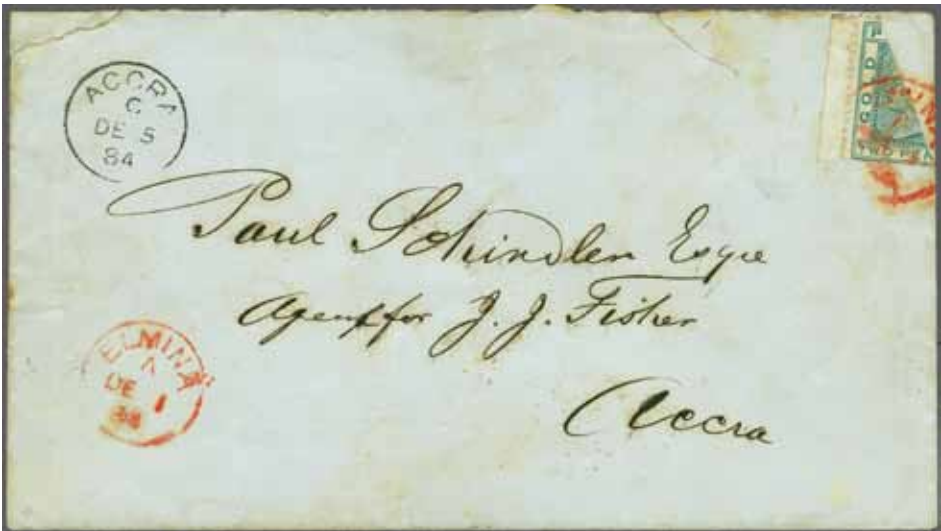 ACCRA
C
DE 5
84
GOLD
TWO PEN
Paul Schindler Esqre
Agent for J. J. Fisher
Accra
ELMINA
A
DE 1
84